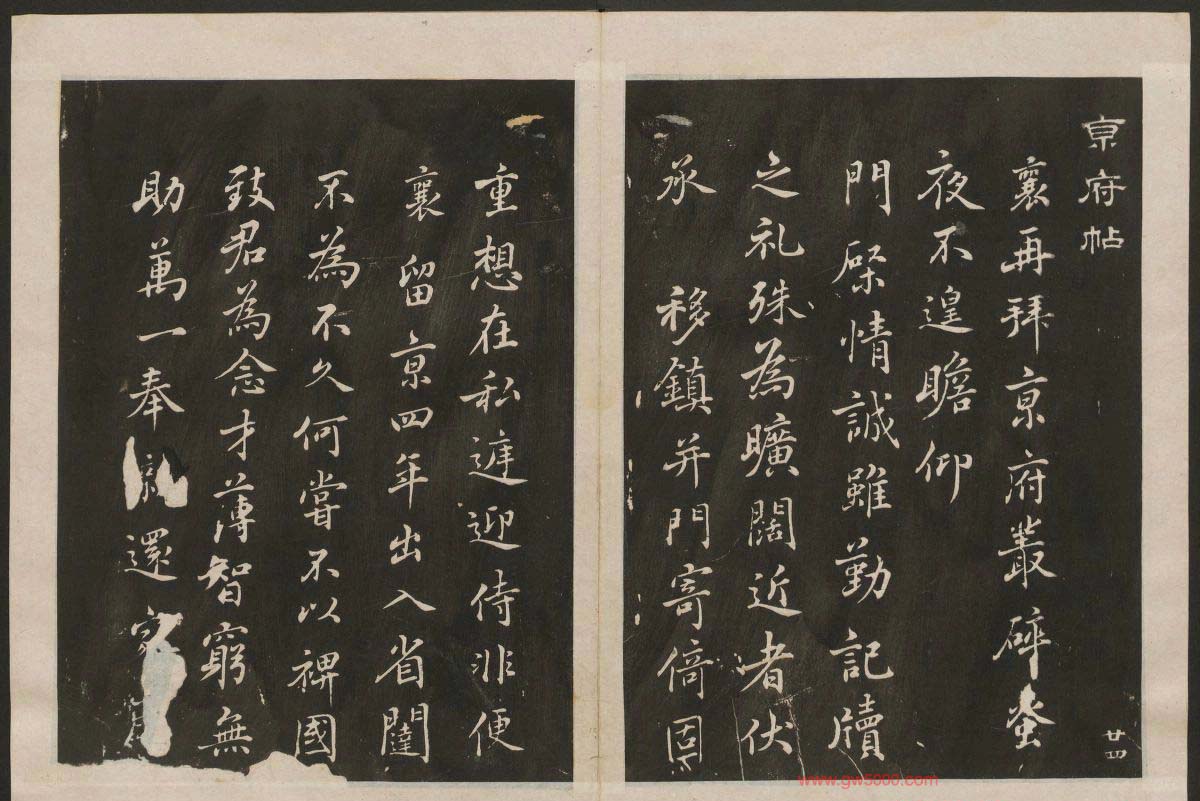 亰府帖
廿四
襄再拜亰府叢碎蚤
夜不遑瞻仰
門棨情誠雖勤記牘
之礼殊為曠闊近者伏
承 移鎮并門寄倚固
重想在私迎侍非便
襄 留亰四年出入省闥
不為不久何嘗不以裨國
致君為念才薄智窮無
助萬一奉還家
www.gw5000.com